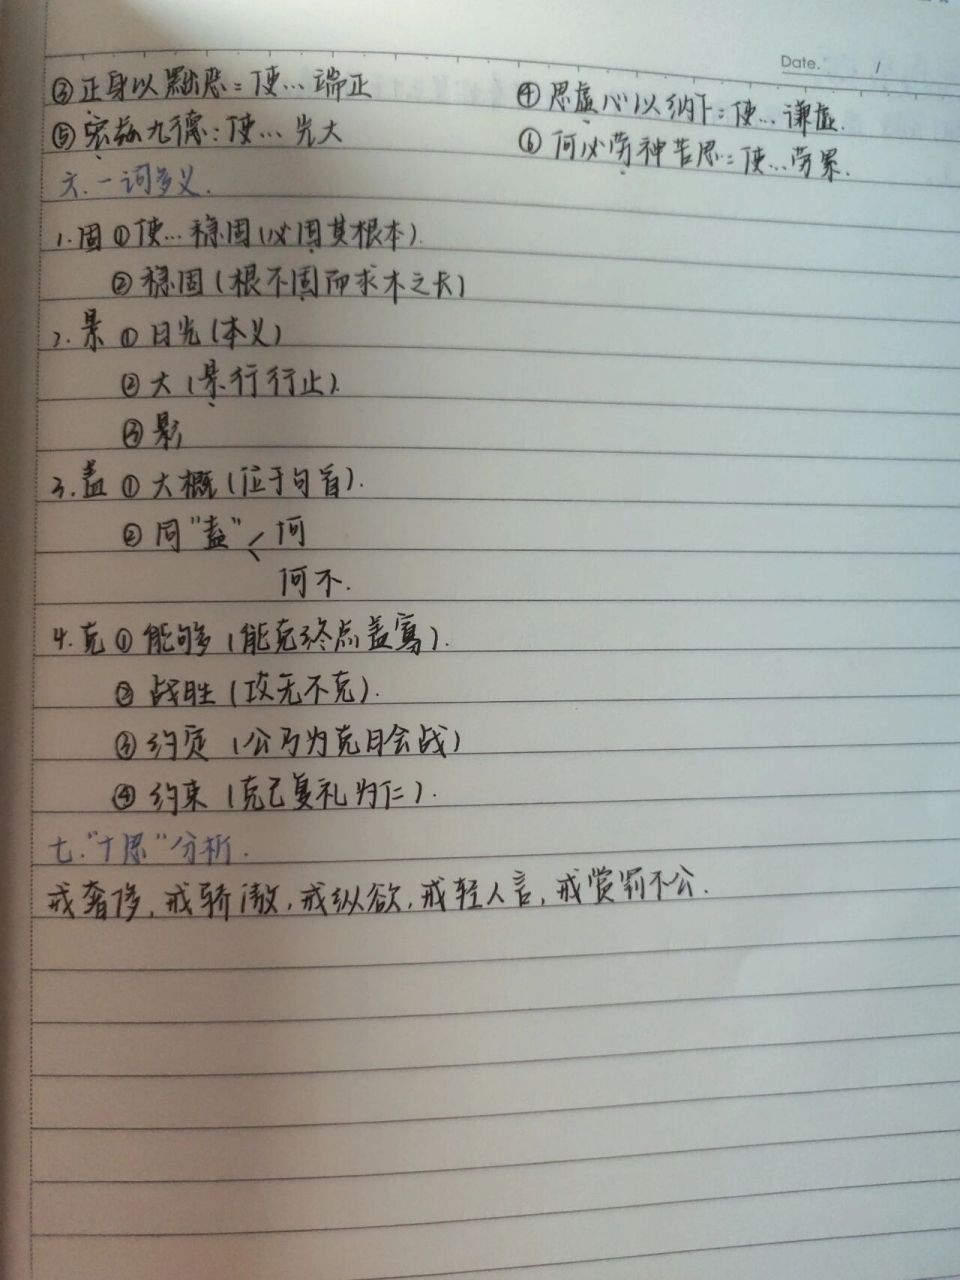 Date. /
③正身以黜恶:使…端正 ④思虚心以纳下:使…谦虚.
⑤宏兹九德:使…光大 ⑥何必劳神苦思:使…劳累.
六.一词多义.
1.固①使…稳固(必固其根本).
②稳固(根不固而求木之长)
2.景①日光(本义)
②大(景行行止).
③影
3.盖①大概(位于句首).
②同"盍" 何
何不.
4.克①能够(能克终点盖寡).
②战胜(攻无不克).
③约定(公乃为克日会战)
④约束(克己复礼为仁).
七."十思"分析.
戒奢侈,戒骄傲,戒纵欲,戒轻人言,戒赏罚不公.